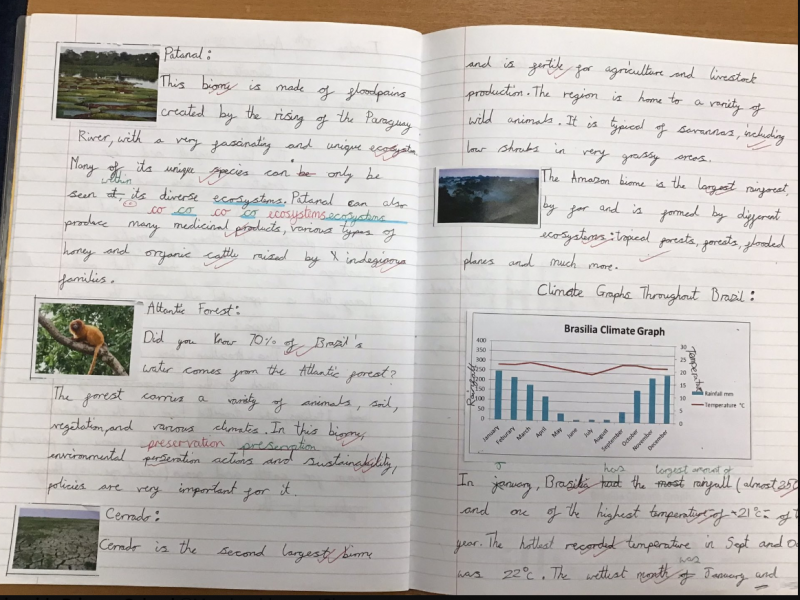 Patanal:
This biome is made of floodpains
created by the rising of the Paraguay
River, with a very fascinating and unique ecosystem
Many of its unique species can be only be
within
seen it, its diverse ecosystems. Patanal can also
co co co co ecosystems ecosystems
produce many medicinal products, various types of
honey and organic cattle raised by indeginous
families.
Atlantic Forest:
Did you know 70% of Brazil's
water comes from the Atlantic forest?
The forest carries a variety of animals, soil,
vegetation, and various climates. In this biome,
preservation preservation
environmental perseration actions and sustainability,
policies are very important for it.
Cerrado:
Cerrado is the second largest biome
and is fertile for agriculture and livestock
production. The region is home to a variety of
wild animals. It is typical of savannas, including
low shrubs in very grassy areas.
The Amazon biome is the largest rainforest
by far and is formed by different
ecosystems: tropical forests, forests, flooded
planes and much more.
Climate Graphs Throughout Brazil:
Brasilia Climate Graph
Rainfall
400
350
300
250
200
150
100
50
0
Temperature
30
25
20
15
10
5
0
January
Feburary
March
April
May
June
July
August
September
October
November
December
Rainfall mm
Temperature °C
J has largest amount of
In january, Brasilia had the most rainfall (almost 250
and one of the highest temperature of ~21°C of t
year. The hottest recorded temperature in Sept and Oc
was
was 22°C. The wettest month of January and